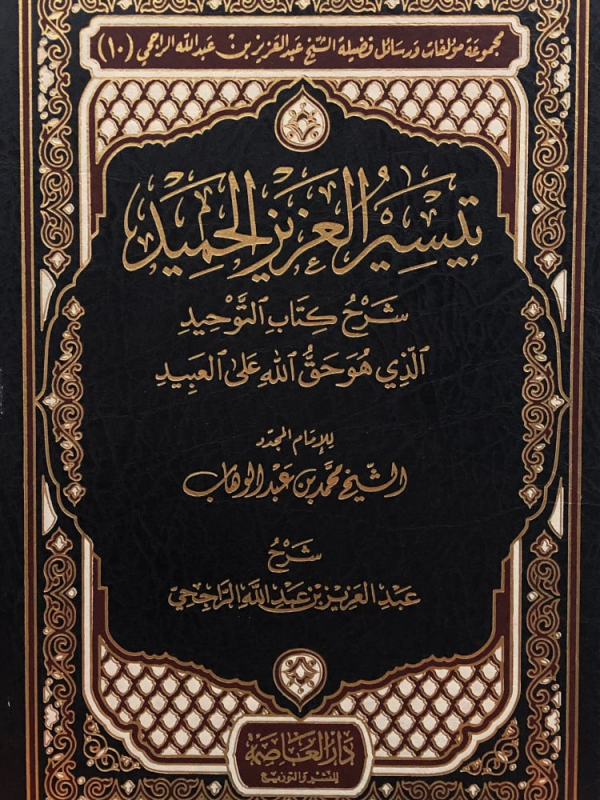 مجموعة مؤلفات ورسائل فضيلة الشيخ عبد العزيز بن عبد الله الراجحي (١٠)
تيسير العزيز الحميد
شَرْحُ كِتَاب التَّوْحِيدِ
الَّذِي هُوَ حَقُّ اللهِ عَلَى العَبِيدِ
للإمام المجدد
الشيخ محمد بن عبد الوهاب
شَرْحُ
عبد العزيز بن عبد الله الراجحي
دار العاصمة
للنشر والتوزيع